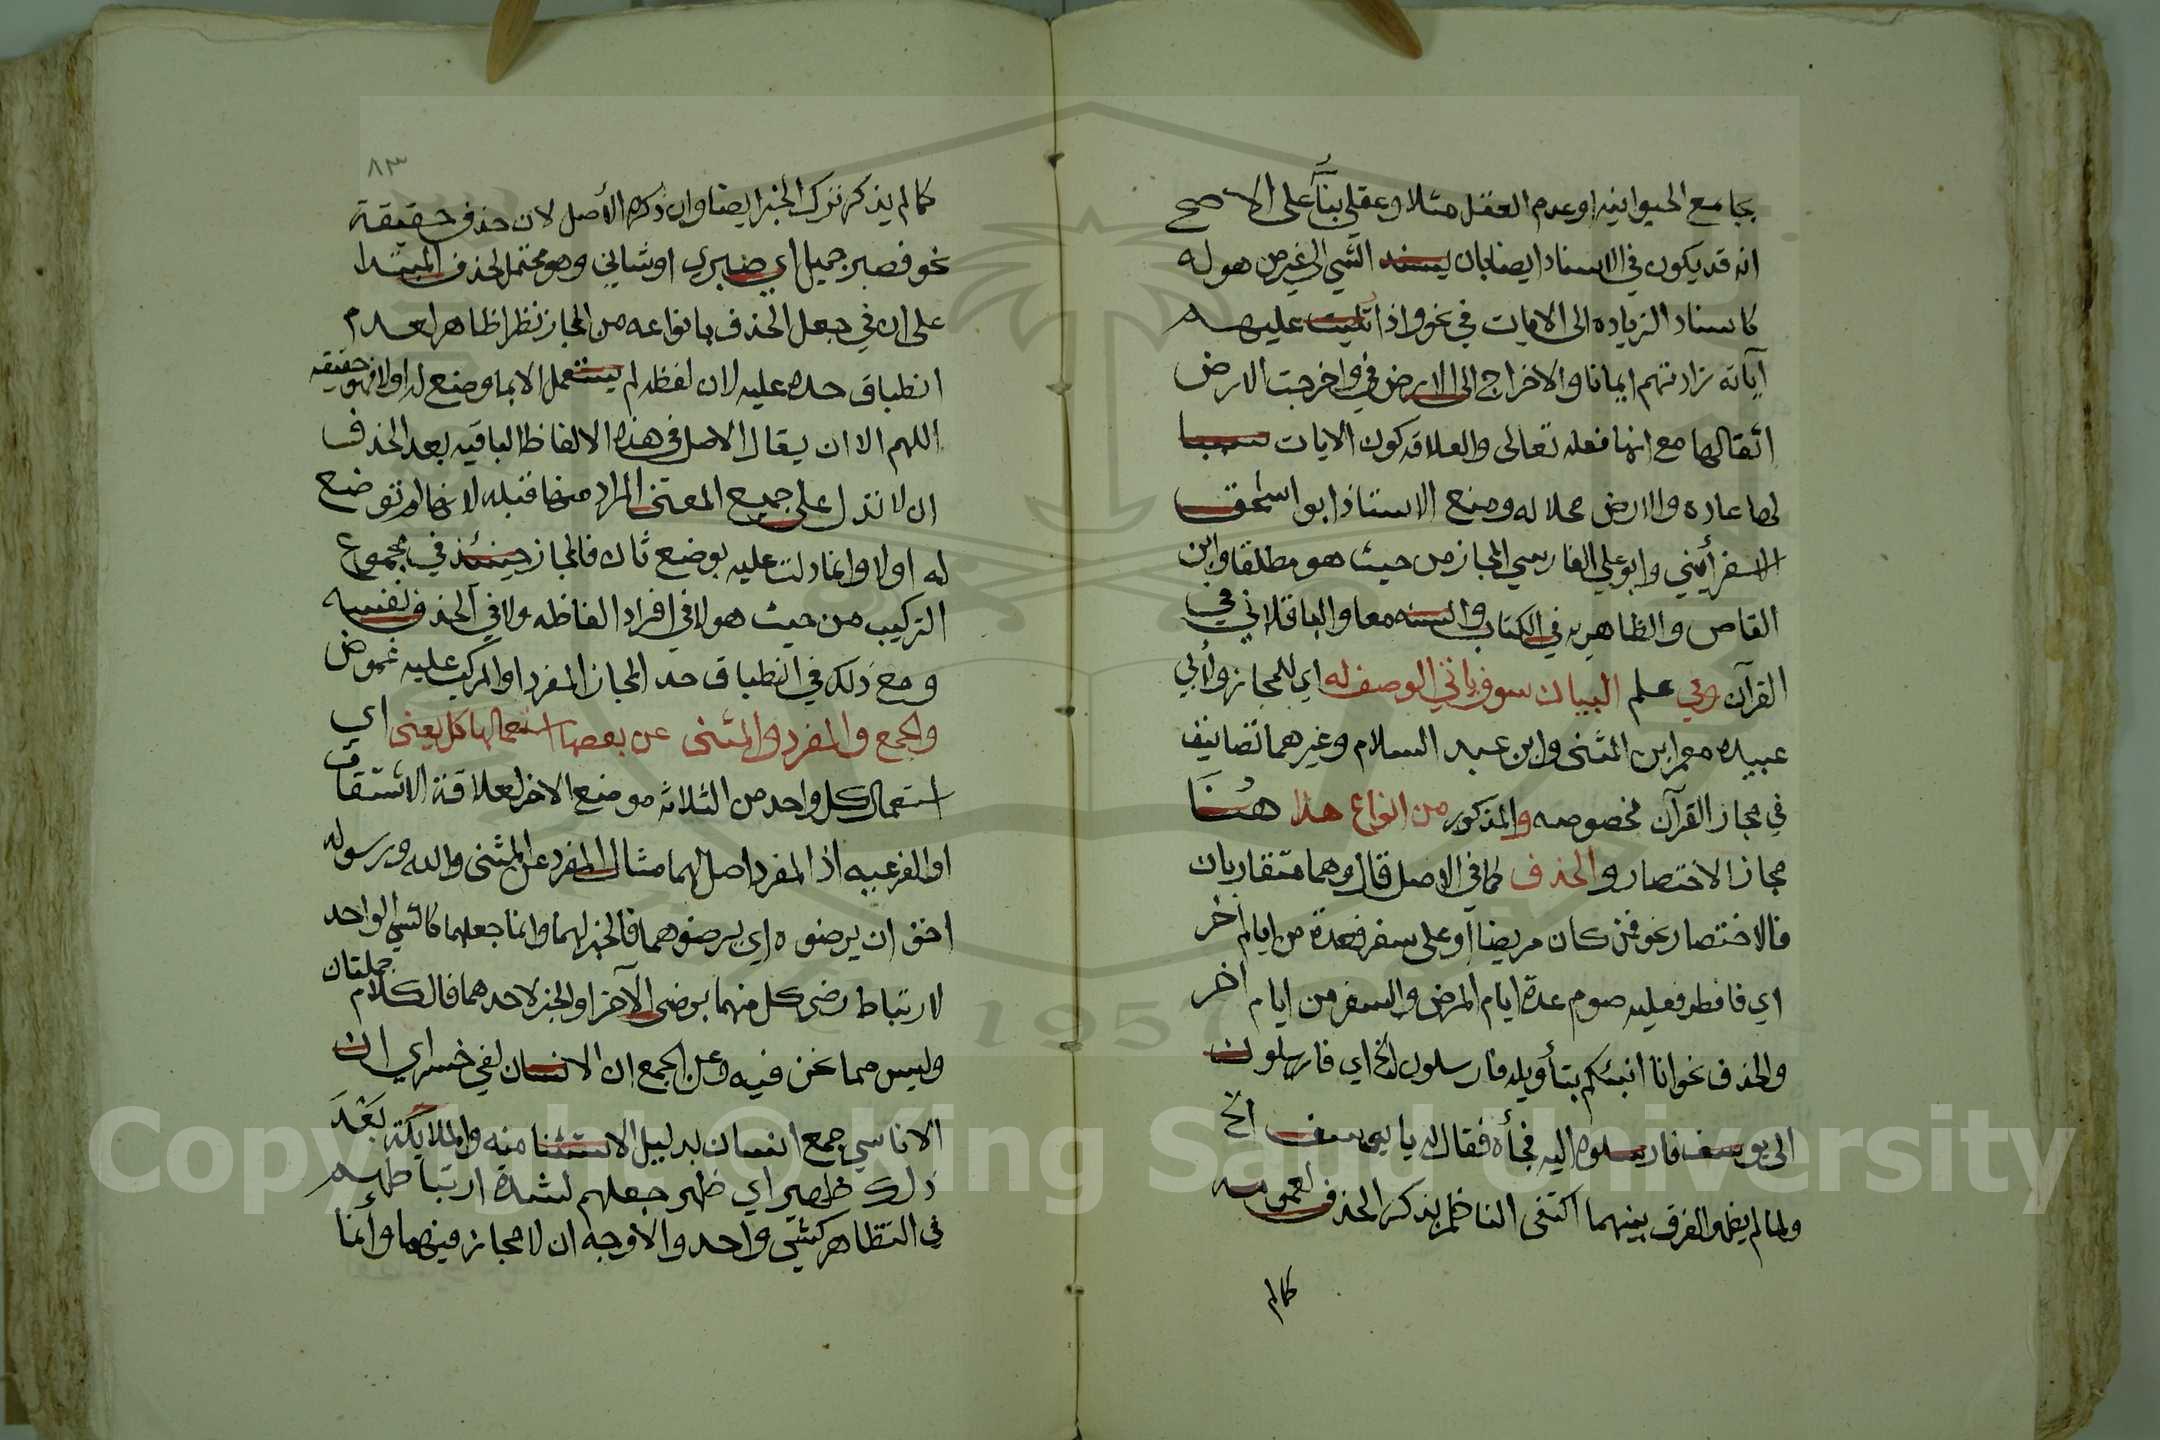 بجامع الحيوانيه او عدم العقل مثلا وعقلي بناءً على الاصح
انه قد يكون في الاسناد ايضا بان يسند الشي الى غير من هو له
كاسناد الزياده الى الايات في نحو واذا تليت عليهم
آياته زادتهم ايمانا والاخراج الى الارض في واخرجت الارض
اثقالها مع انها فعله تعالى والعلاقه كون الايات سببا
لها عاده والارض محلا له ومنع الاستاذ ابو اسحق
الاسفرأيني وابو علي الفارسي المجاز من حيث هو مطلقا وابن
القاص والظاهريه في الكتاب والسنه معا والباقلاني في
القرآن وفي علم البيان سوف ياتي الوصف له اي للمجاز ولأبي
عبيده معمر ابن المثنى وابن عبد السلام وغيرهما تصانيف
في مجاز القرآن بخصوصه والمذكور من انواع هذا هُنَا
مجاز الاختصار والحذف كما في الاصل قال وهما متقاربان
فالاختصار نحو فمن كان مريضا أو على سفر فعدة من ايام أخر
اي فافطر فعليه صوم عدة ايام المرض والسفر من ايام اخر
والحذف نحو انا انبئكم بتأويله فارسلون الخ اي فارسلون
الى يوسف فارسلوه اليه فجأه فقال له يا يوسف الخ
ولما لم يظهر الفرق بينهما اكتفى الناظم بذكر الحذف لعمومه
كما لم
٨٣
كما لم يذكر ترك الخبر ايضا وان ذكره الأصل لان حذف حقيقة
نحو فصبر جميل اي صبري او شاني وهو محتمل لحذف المبتدا
على ان في جعل الحذف بانواعه من المجاز نظرا ظاهرا لعدم
انطباق حده عليه لان لفظه لم يستعمل الا بما وضع له اولا فهو حقيقه
اللهم الا ان يقال الاصل في هذه الالفاظ الباقيه بعد الحذف
ان لا تدل على جميع المعنى المراد منها قبله لانها لم توضع
له اولا وانما دلت عليه بوضع ثان فالمجاز حينئذ في مجموع
التركيب من حيث هو لا في افراد الفاظه ولا في الحذف نفسه
ومع ذلك في انطباق حد المجاز المفرد او المركب عليه غموض
والجمع والمفرد والمثنى عن بعضها استعمالها كل يعنى اي
استعمال كل واحد من الثلاثه موضع الاخر لعلاقة الاشتقاق
او الفرعيه اذ المفرد اصل لهما مثال المفرد عن المثنى والله ورسوله
احق ان يرضوه اي يرضوهما فالخبر لهما وانما جعلهما كالشي الواحد
لارتباط رضى كل منهما برضى الآخر او الخبر لاحدهما فالكلام جملتان
وليس مما نحن فيه وعن الجمع ان الانسان لفي خسر اي ان
الاناسي جمع انسان بدليل الاستثنا منه والملايكة بَعْدَ
ذلك ظهير اي ظهر جعلهم لشدة ارتباطهم
في التظاهر كشي واحد والاوجه ان لا مجاز فيهما وأنما